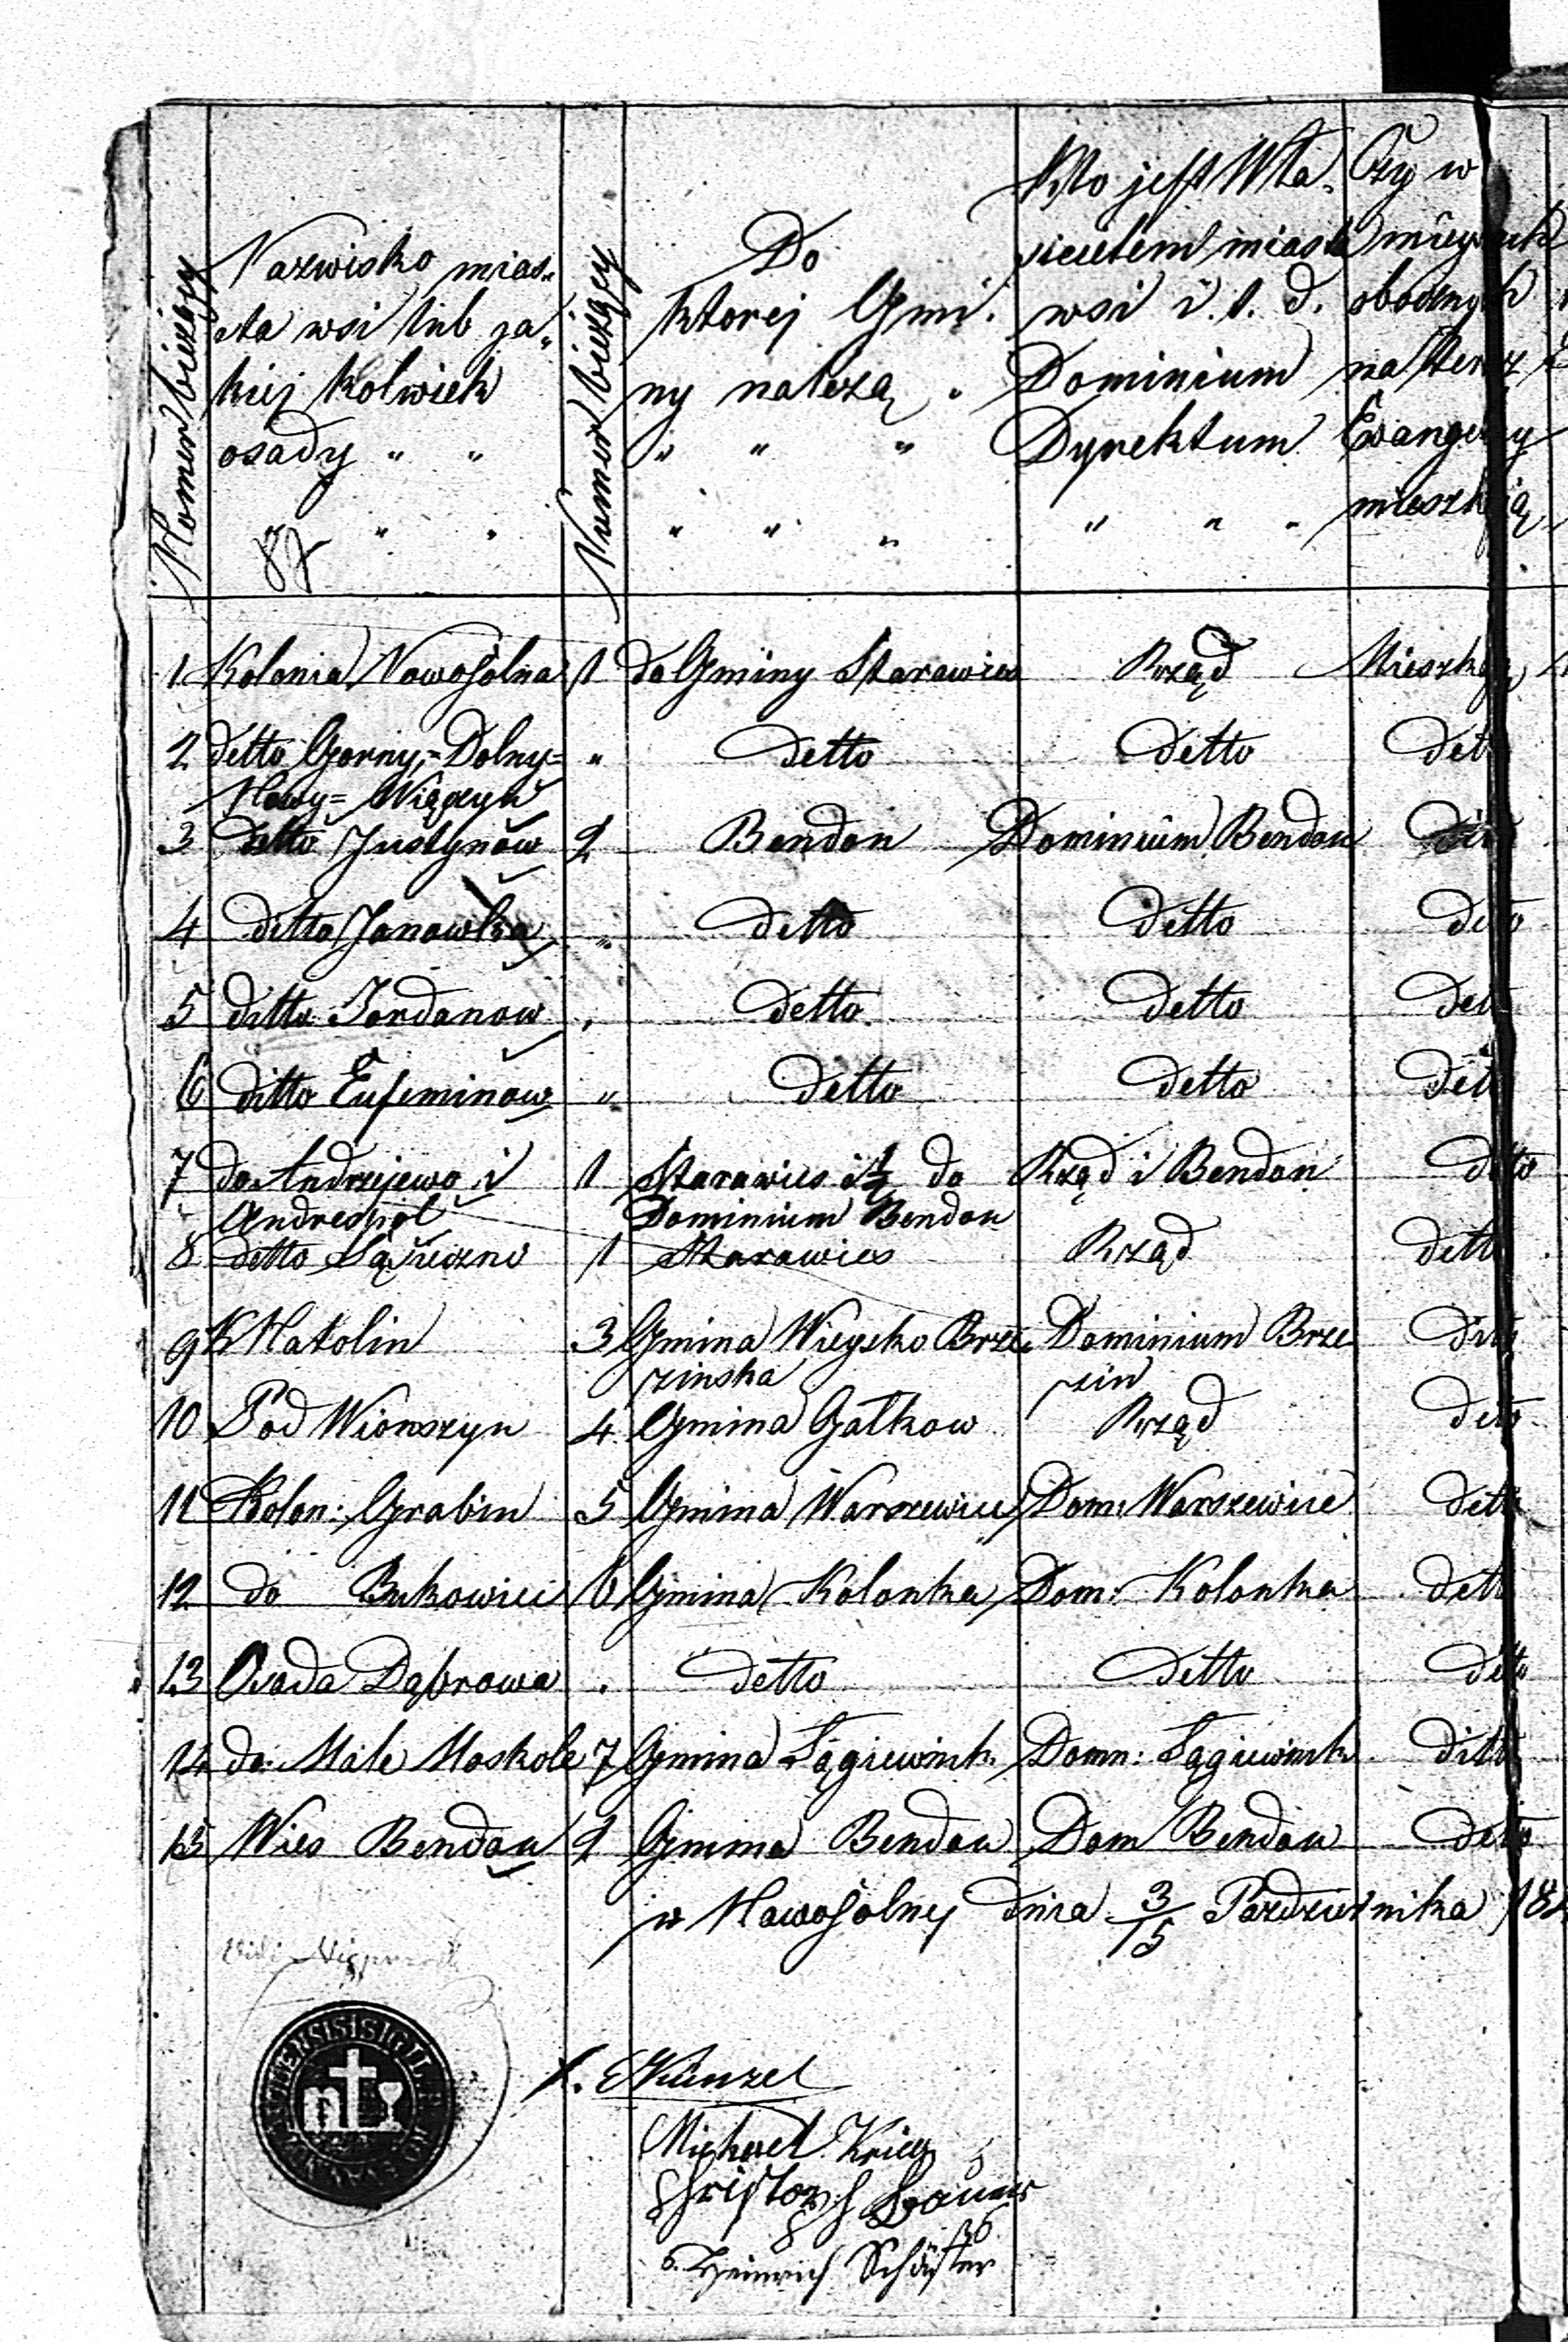 Nomer bieżący
Nazwisko mias„
sta wsi lub ja„
kiej kolwiek
osady „ „
„ „
Numer bieżący
Do
ktorej Gmi.
ny należą „
„ „ „
„ „ „
Kto jest Wła.
sicielem miasta
wsi i. t. d.
Dominium
Dyrektum
„ „ „
Czy w
obocznych
na
mieszkają
1 Kolonia Nowosolna 1 do Gminy Starawies Rząd Mieszkają
2 detto Gorny,= Dolny= „ detto detto det
Nowy= Wiączyń
3 detto Justynów 2 Bendon Dominium Bendon
4 detto Janowka „ detto detto detto
5 ditto Jordanow „ detto detto det
6 ditto Eufeminow „ detto detto det
7 do Andrzejewo i 1 Starawies i ½ do Rząd i Bendon detto
Andrespol Dominium Bendon
8 detto 1 Starawies Rząd dett
9 K Natolin 3 Gmina Wieysko Brze„ Dominium Brze
zinska zin
10 Pod Wionszyn 4 Gmina Gałkow Rząd detto
11 Kolon: Grabin 5 Gmina Warszewice Dom: Warszewice dett
12 do Bukowiec 6 Gmina Kolonka Dom: Kolonka dett
13 Osada Dąbrowa „ detto detto detto
14 do: Małe Moskole 7 Gmina Łagiewnik Domn: Łagiewnik ditt
15 Wies Bendon 2 Gmina Bendon Dom Bendon detto
w Nowosolny dnia 3/15 Pazdziernika 18
Künzel
Michael Krieg
Christoph Bauer
Heinrich Schäffer